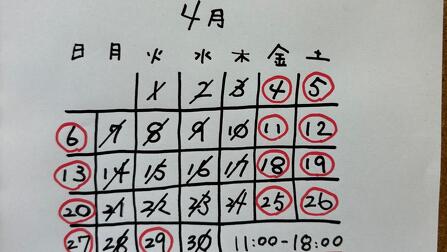 4月
日 月 火 水 木 金 土
1 2 3 4 5
6 7 8 9 10 11 12
13 14 15 16 17 18 19
20 21 22 23 24 25 26
27 28 29 30 11:00-18:00